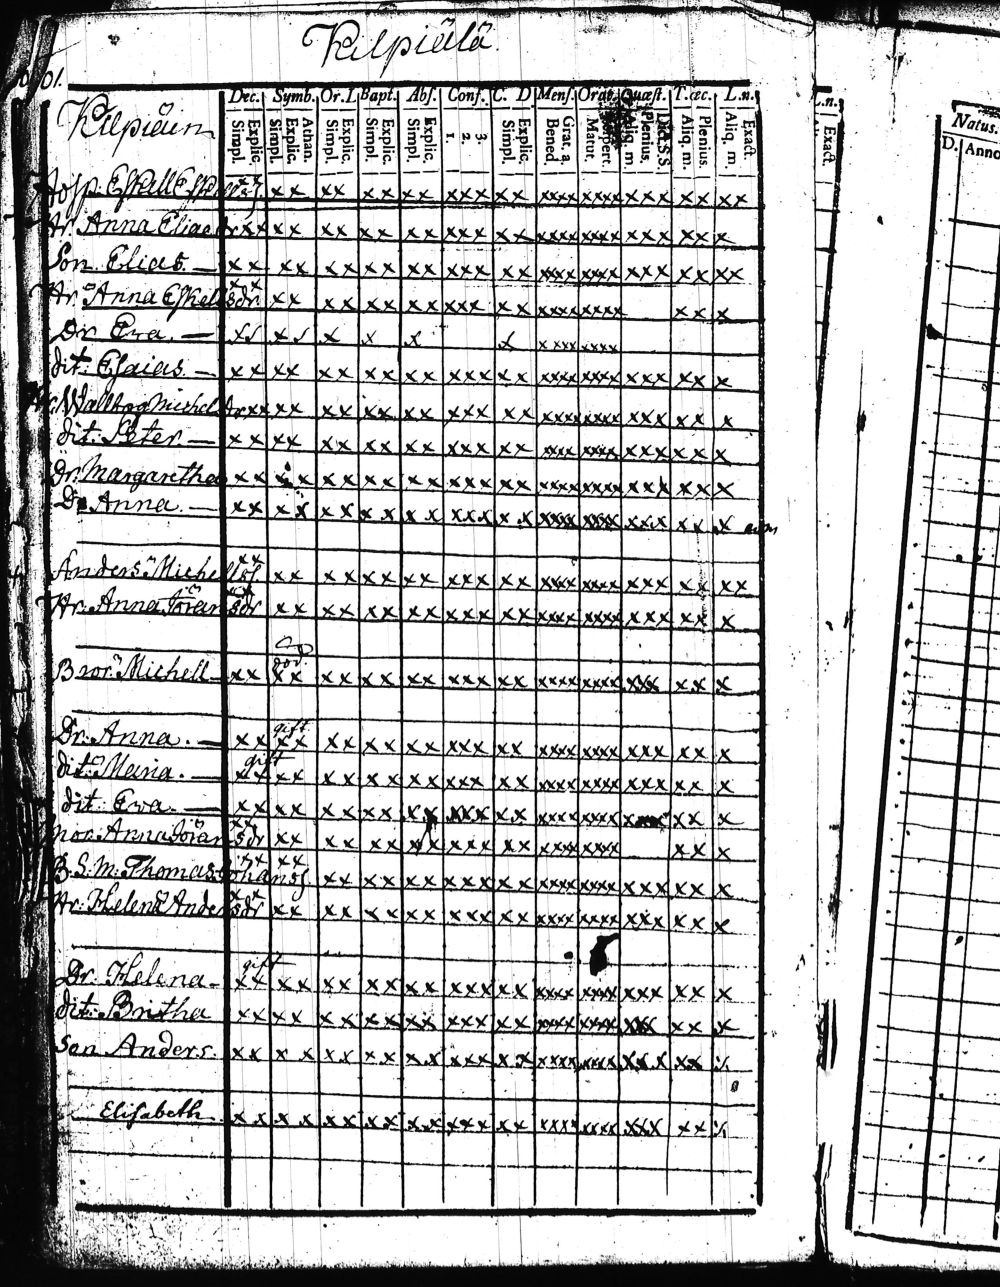 Kilpiälä
01.
Dec. Symb. Or. D Bapt. Abs. Conf. C. D Mens. Orat. Quæst. T. œc. L. n.
Explic. Simpl. Athan. Explic. Simpl. Explic. Simpl. Explic. Simpl. Explic. Simpl. 3. 2. 1. Explic. Simpl. Grat. a. Bened. Matut. Plenius. Aliq. m. Plenius. Aliq. m. Exact. Aliq. m.
L.n.
Exact.
Natus.
D. Anno
Kilpiäin
Eskell Eskellss xx xx xx xx xx xxx xx xxxx xxxx xxx xx xx
Hr. Anna Eliaedr xx xx xx xx xx xxx xx xxxx xxxx xxx xx x
Son Elias — xx xx xx xx xx xxx xx xxxx xxxx xxx xx xx
Hr. Anna Eskellsdr xx xx xx xx xx xxx xx xxxx xxxx xx x
Dr Eva. — x x x x x x xxxx xxxx
dit: Esaias — xx xx xx xx xx xxx xx xxxx xxxx xxx xx x
Michelsdr xx xx xx xx xx xxx xx xxxx xxxx xxx xx x
dit. Peter — xx xx xx xx xx xxx xx xxxx xxxx xxx xx x
Dr. Margaretha xx xx xx xx xx xxx xx xxxx xxxx xxx xx x
Dr Anna — xx xx xx xx xx xxx xx xxxx xxxx xxx xx x
Anders Michellss xx xx xx xx xx xxx xx xxxx xxxx xxx xx xx
Hr. Anna Jöransdr xx xx xx xx xx xxx xx xxxx xxxx xxx xx x
Bror Michell — xx xx xx xx xx xxx xx xxxx xxxx xxx xx x
gift
Dr. Anna. — xx xx xx xx xx xxx xx xxxx xxxx xxx xx x
gift
dit: Maria. — xx xx xx xx xx xxx xx xxxx xxxx xxx xx x
dit. Eva — xx xx xx xx xx xxx xx xxxx xxxx xxx xx x
Mor. Anna Jöransdr xx xx xx xx xx xxx xx xxxx xxxx xx x
B. S. M. Thomas Johanss xx xx xx xx xx xxx xx xxxx xxxx xxx xx x
Hr. Helena Andersdr xx xx xx xx xx xxx xx xxxx xxxx xxx xx x
gift
Dr. Helena — xx xx xx xx xx xxx xx xxxx xxxx xxx xx x
dit: Britha xx xx xx xx xx xxx xx xxxx xxxx xxx xx x
Son Anders. xx xx xx xx xx xxx xx xxxx xxxx xxx xx
Elisabeth xx xx xx xx xx xxx xx xxxx xxxx xxx xx